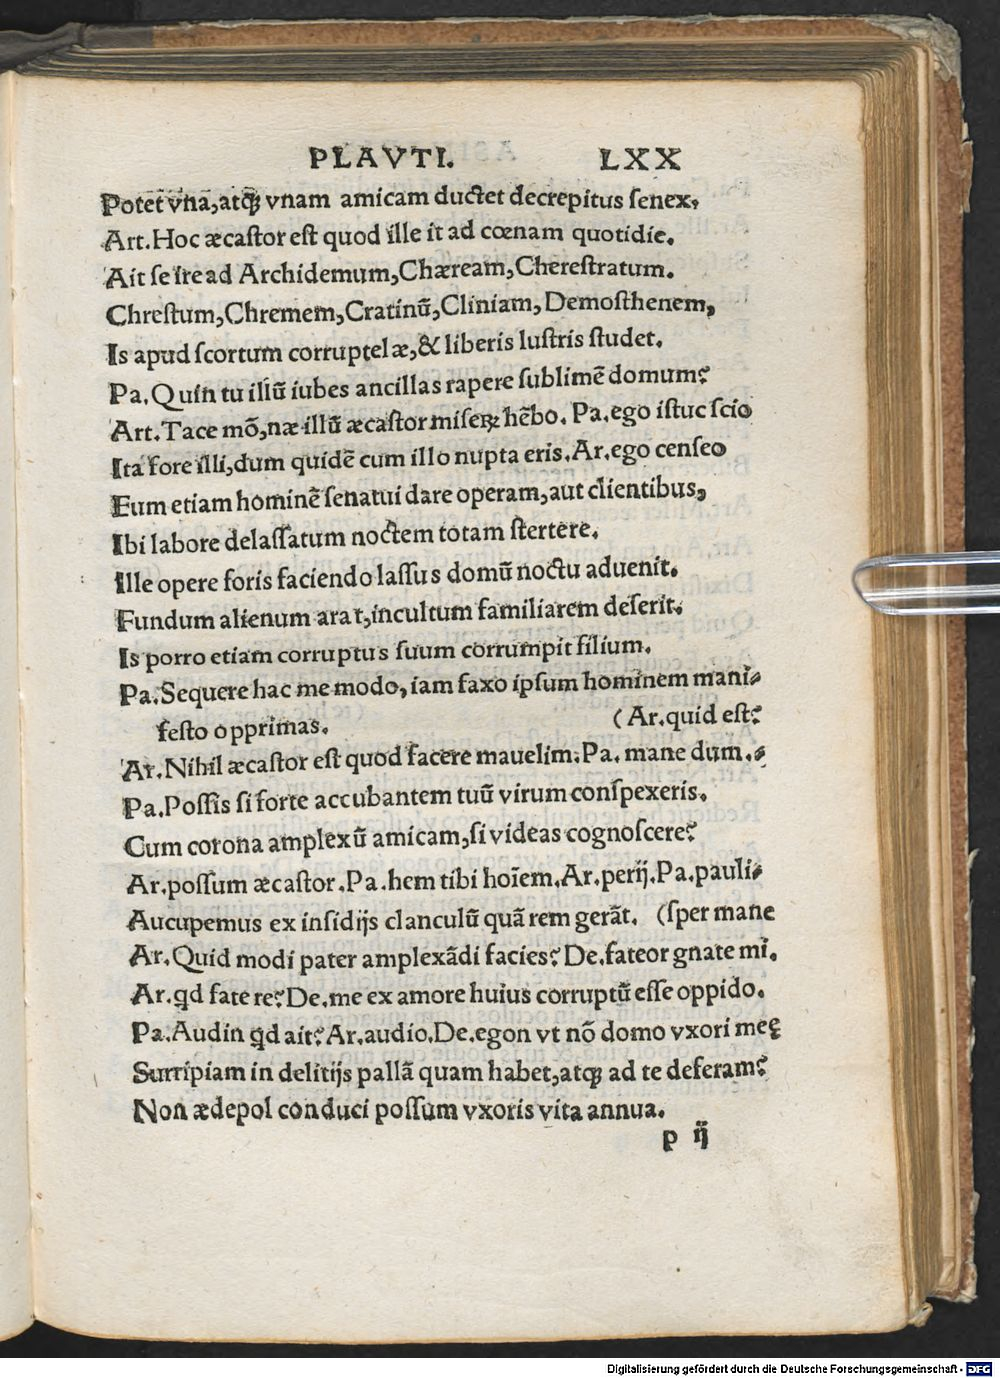 PLAVTI. LXX
Potet vnā, atqꝫ vnam amicam ductet decrepitus ſenex.
Art. Hoc æcaſtor eſt quod ille it ad cœnam quotidie.
Ait ſe ire ad Archidemum, Chæream, Chereſtratum.
Chreſtum, Chremem, Cratinū, Cliniam, Demoſthenem,
Is apud ſcortum corruptelæ, & liberis luſtris ſtudet.
Pa. Quin tu illū iubes ancillas rapere ſublimē domum?
Art. Tace mō, næ illū æcaſtor miſeꝝ hēbo. Pa. ego iſtuc ſcio
Ita fore illi, dum quidē cum illo nupta eris. Ar. ego cenſeo
Eum etiam hominē ſenatui dare operam, aut clientibus,
Ibi labore delaſſatum noctem totam ſtertere.
Ille opere foris faciendo laſſus domū noctu aduenit.
Fundum alienum arat, incultum familiarem deſerit.
Is porro etiam corruptus ſuum corrumpit filium.
Pa. Sequere hac me modo, iam faxo ipſum hominem mani⸗
feſto opprimas. (Ar. quid eſt?
Ar. Nihil æcaſtor eſt quod facere mauelim. Pa. mane dum.⸗
Pa. Poſſis ſi forte accubantem tuū virum conſpexeris.
Cum corona amplexū amicam, ſi videas cognoſcere?
Ar. poſſum æcaſtor. Pa. hem tibi hoīem. Ar. perij. Pa. pauli⸗
Aucupemus ex inſidijs clanculū quā rem gerāt. (ſper mane
Ar. Quid modi pater amplexādi facies? De. fateor gnate mi.
Ar. qd fatere? De. me ex amore huius corruptū eſſe oppido.
Pa. Audin qd ait? Ar. audio. De. egon vt nō domo vxori meę
Surripiam in delitijs pallā quam habet, atqꝫ ad te deferam?
Non ædepol conduci poſſum vxoris vita annua.
p ij
Digitalisierung gefördert durch die Deutsche Forschungsgemeinschaft - DFG